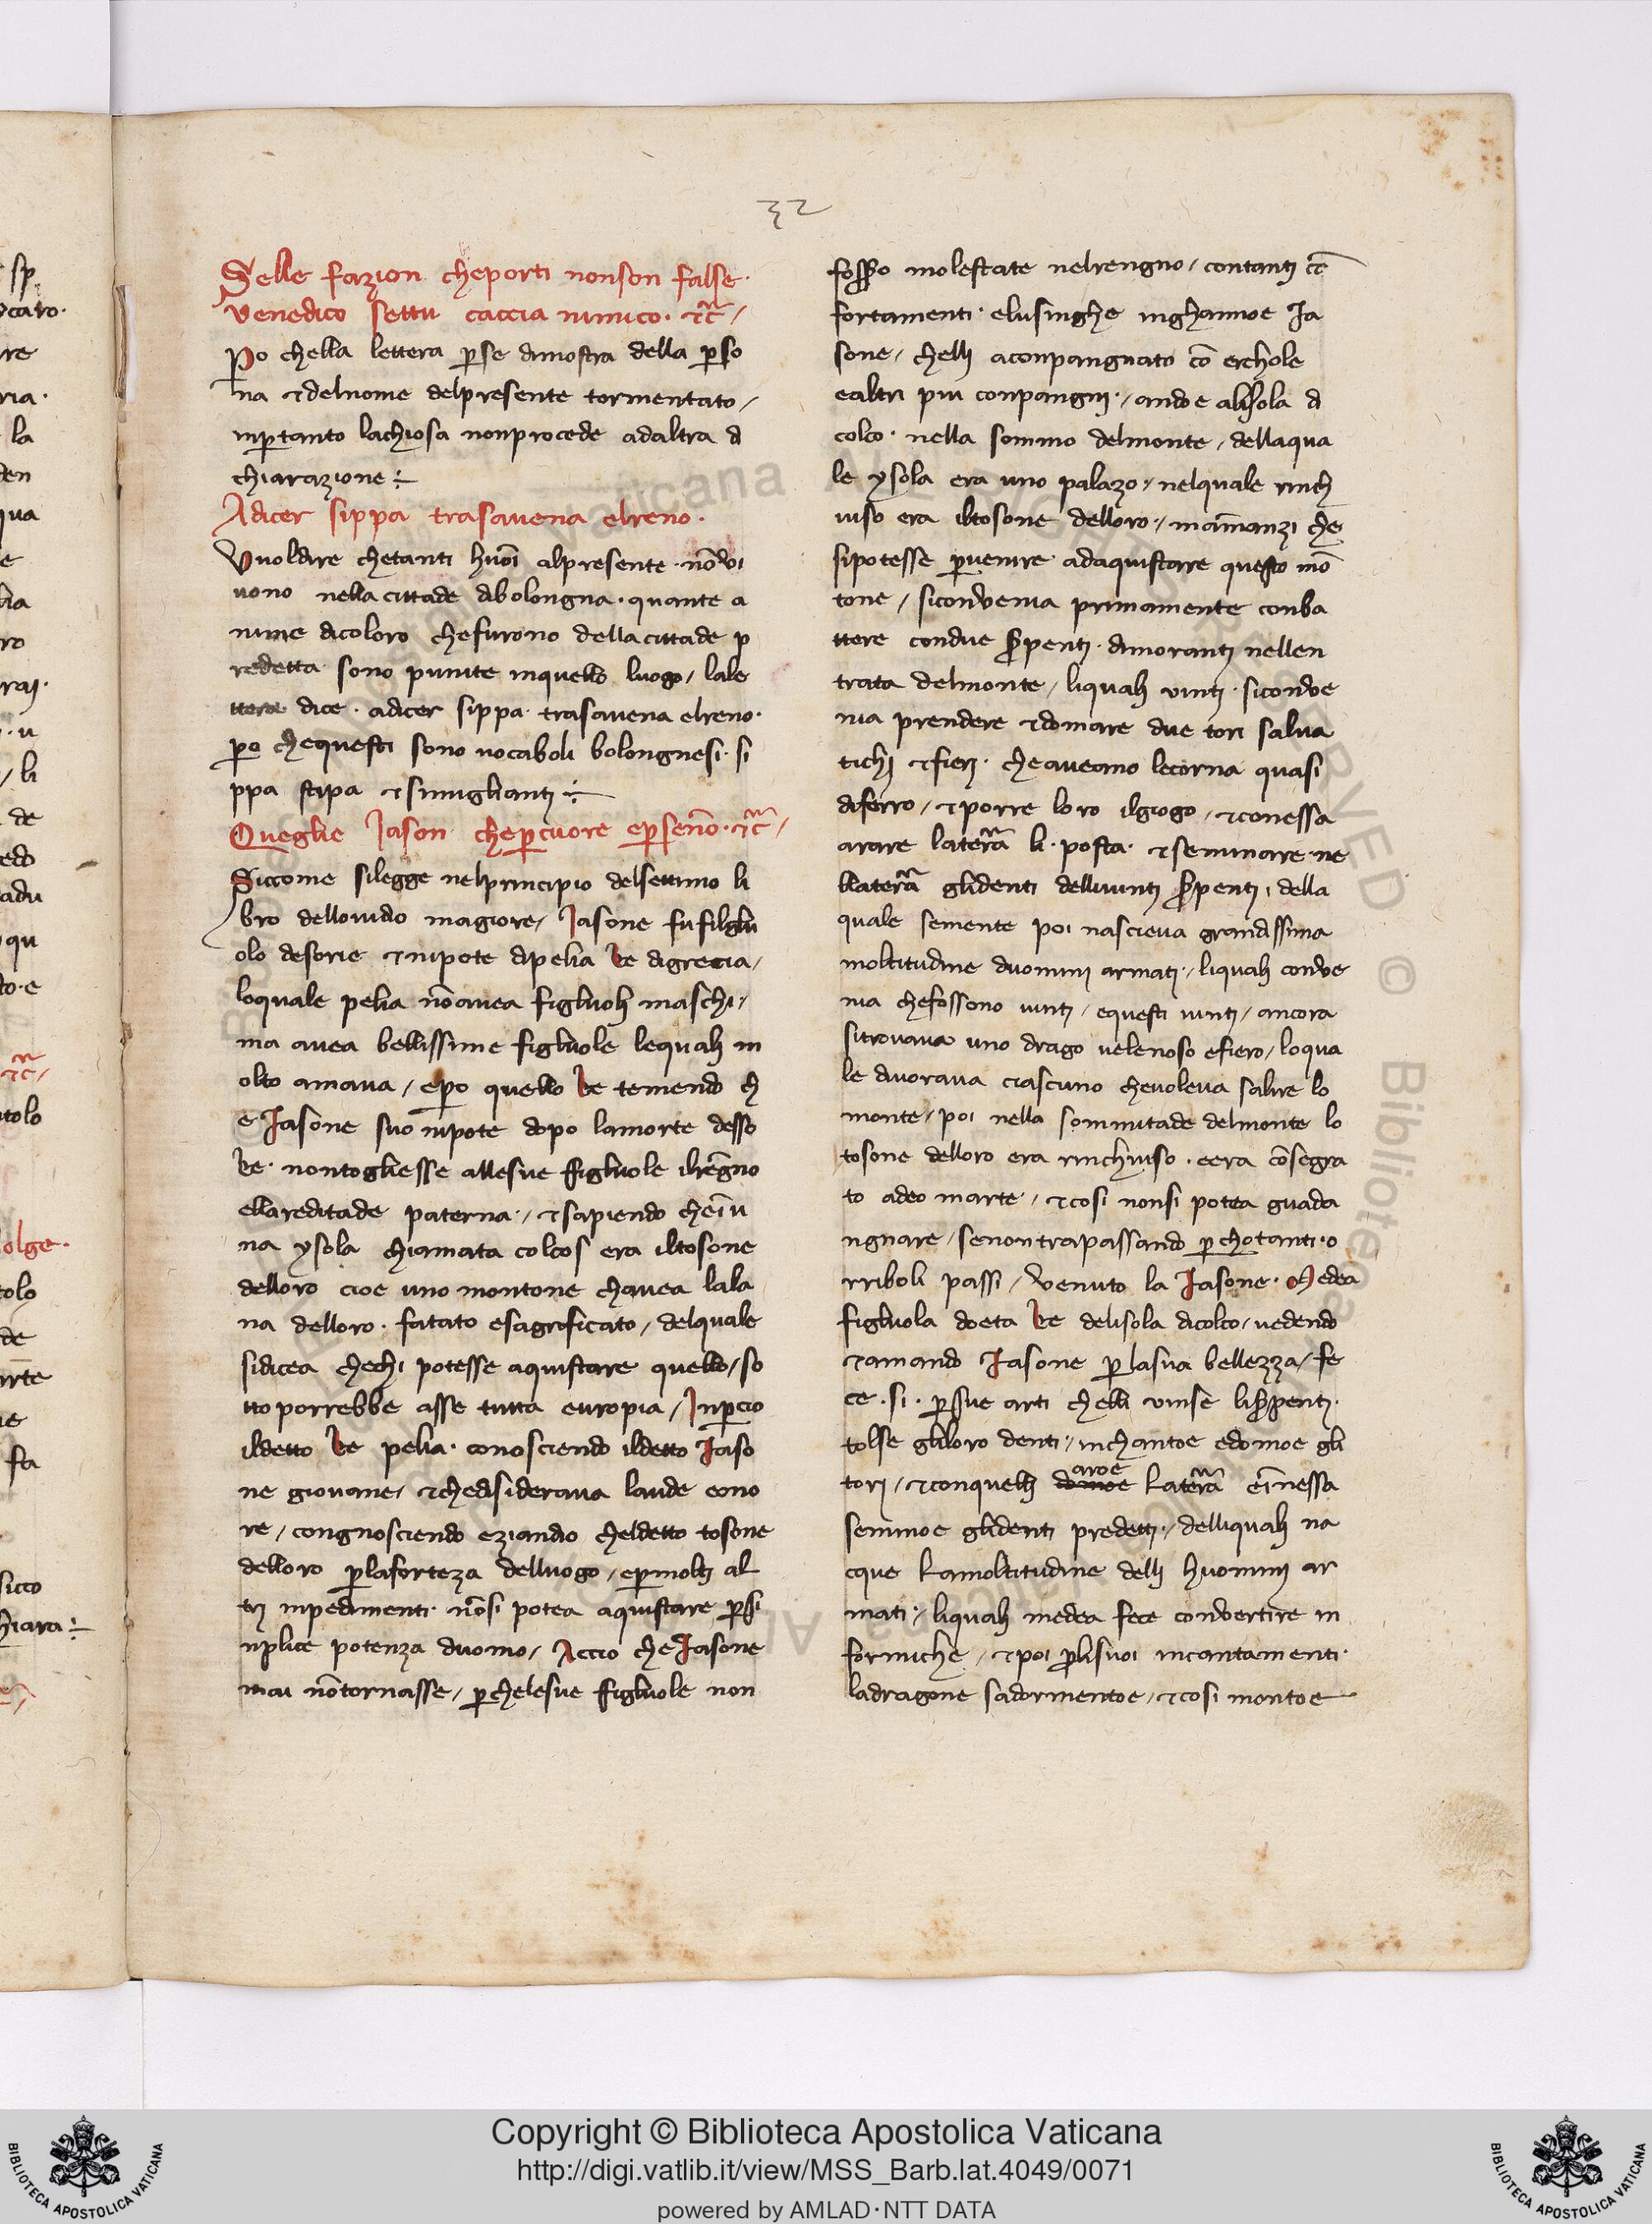 32
Selle fazion cheporti nonson false·
venedico settu caccia nimico· ⁊c̃/
Po chella lettera ꝑse dimostra della ꝑso
na ⁊delnome delpresente tormentato/
inꝑtanto lachiosa nonprocede adaltra di
chiarazione÷
Adicer sippa trasavena elreno·
Vuoldire chetanti huoĩ alpresente·nõvi
uono nella cittade dibolongna·quante a
nime dicoloro chefurono dellacittade p
redetta sono punite inquello luogo/ lale
ttera dice·adicer sippa·trasavena elreno·
ꝑo chequesti sono uocaboli bolongnesi·si
ppa stipa ⁊simiglianti÷
Queglie Jason cheꝑcuore eꝑsenno·⁊c̃/
Siccome silegge nelprincipio delsettimo li
bro dellouidio magiore/ Jasone fufiglu
olo desone ⁊nipote dipelia Re digrecia/
loquale pelia nõavea figluoli maschi·/
ma avea bellissime figluole lequali m
olto amava/ eꝑo quello Re temendo ch
e Jasone suo nipote dopo lamorte desso
Re·nontogliesse allesue figluole ilrẽgno
ellareditade paterna·/ ⁊sapiendo cheĩu
na ysola chiamata colcos era iltosone
delloro cioe uno montone chavea lala
na delloro·fatato esagroficato/ delquale
sidicea chechi potesse aquistare quello/so
tto porrebbe asse tutta europia/ Inꝑcio
ildetto Re pelia·conosciendo ildetto Jaso
ne giovane/ ⁊chedisiderava laude eono
re/ congnosciendo eziandio cheldetto tosone
delloro ꝑlaforteza delluogo/ eꝑmolti al
tri inpedimenti·nõsi potea aquistare ꝑsi
nplice potenza duomo/ Accio che Jasone
mai nõtornasse/ ꝑchelesue figluole non
fosso molestate nelrengno/ contanti cõ
fortamenti·elusinghe inghannoe Ja
sone/ chelli aconpangnato cõ erchole
ealtri piu conpangni·/andoe alisola di
colco·nella sommo delmonte/ dellaqua
le ysola era uno palazo·/ nelquale rinch
iuso era iltosone delloro·/ ma ĩnanzi che
sipotesse ꝑuenire adaquistare questo mõ
tone/ siconvenia primamente conba
ttere condue sꝑpenti·dimoranti nellen
trata delmonte/ liquali vinti·siconve
nia prendere ⁊domare due tori salua
tichi ⁊fieri·cheaueano lecorna quasi
diferro/ ⁊porre loro ilgiogo/ ⁊conessa
arare laterã li·posta·⁊seminare·ne
llaterã glidenti delliuinti sꝑpenti·della
quale semente poi nascieua grandissima
moltitudine duomini armati·/ liquali conve
nia chefossono uinti/ equesti uinti/ ancora
sitrovava uno drago velenoso efiero/ loqua
le divorava ciascuno chevoleva salire lo
monte/ poi nella sommitade delmonte lo
tosone delloro era rinchiuso·eera cõsegra
to adeo marte·/ ⁊cosi nonsi potea guada
ngnare/senontrapassando ꝑchotanti·o
rriboli passi/ Venuto la Jasone·Medea
figluola doeta Re delisola dicolco/ vedendo
⁊amando Jasone ꝑlasua bellezza/ fe
ce·si·ꝑsue arti chelli vinse lisꝑpenti·
tolse gliloro denti·/ inchantoe edomoe gli
tori/ ⁊conquelli domoe aroe laterã eĩnessa
seminoe glidenti predetti·/ delliquali na
cque lamoltitudine delli huomini ar
mati·/ liquali medea fece convertire in
formiche/ ⁊poi ꝓlisuoi incantamenti·
ladragone sadormentoe/ ⁊cosi montoe
sp
la
qua
ro
de
tolo
olge·
de
fa
hiara÷
Copyright © Biblioteca Apostolica Vaticana
http://digi.vatlib.it/view/MSS_Barb.lat.4049/0071
powered by AMLAD·NTT DATA
BIBLIOTECA APOSTOLICA VATICANA
BIBLIOTECA APOSTOLICA VATICANA